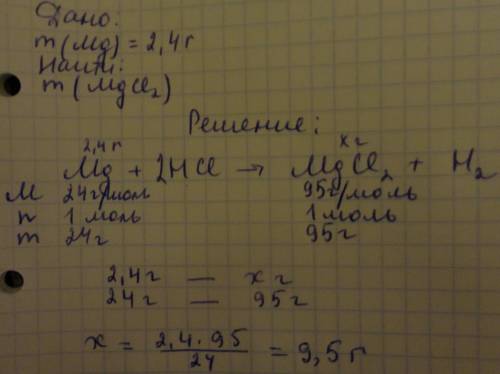 Дано:
m(Mg) = 2,4г
Найти:
m(MgCl₂)
Решение:
2,4г xг
Mg + 2HCl → MgCl₂ + H₂
M 24г/моль 95г/моль
n 1 моль 1 моль
m 24г 95г
2,4г — xг
24г — 95г
x = 2,4·95/24 = 9,5г